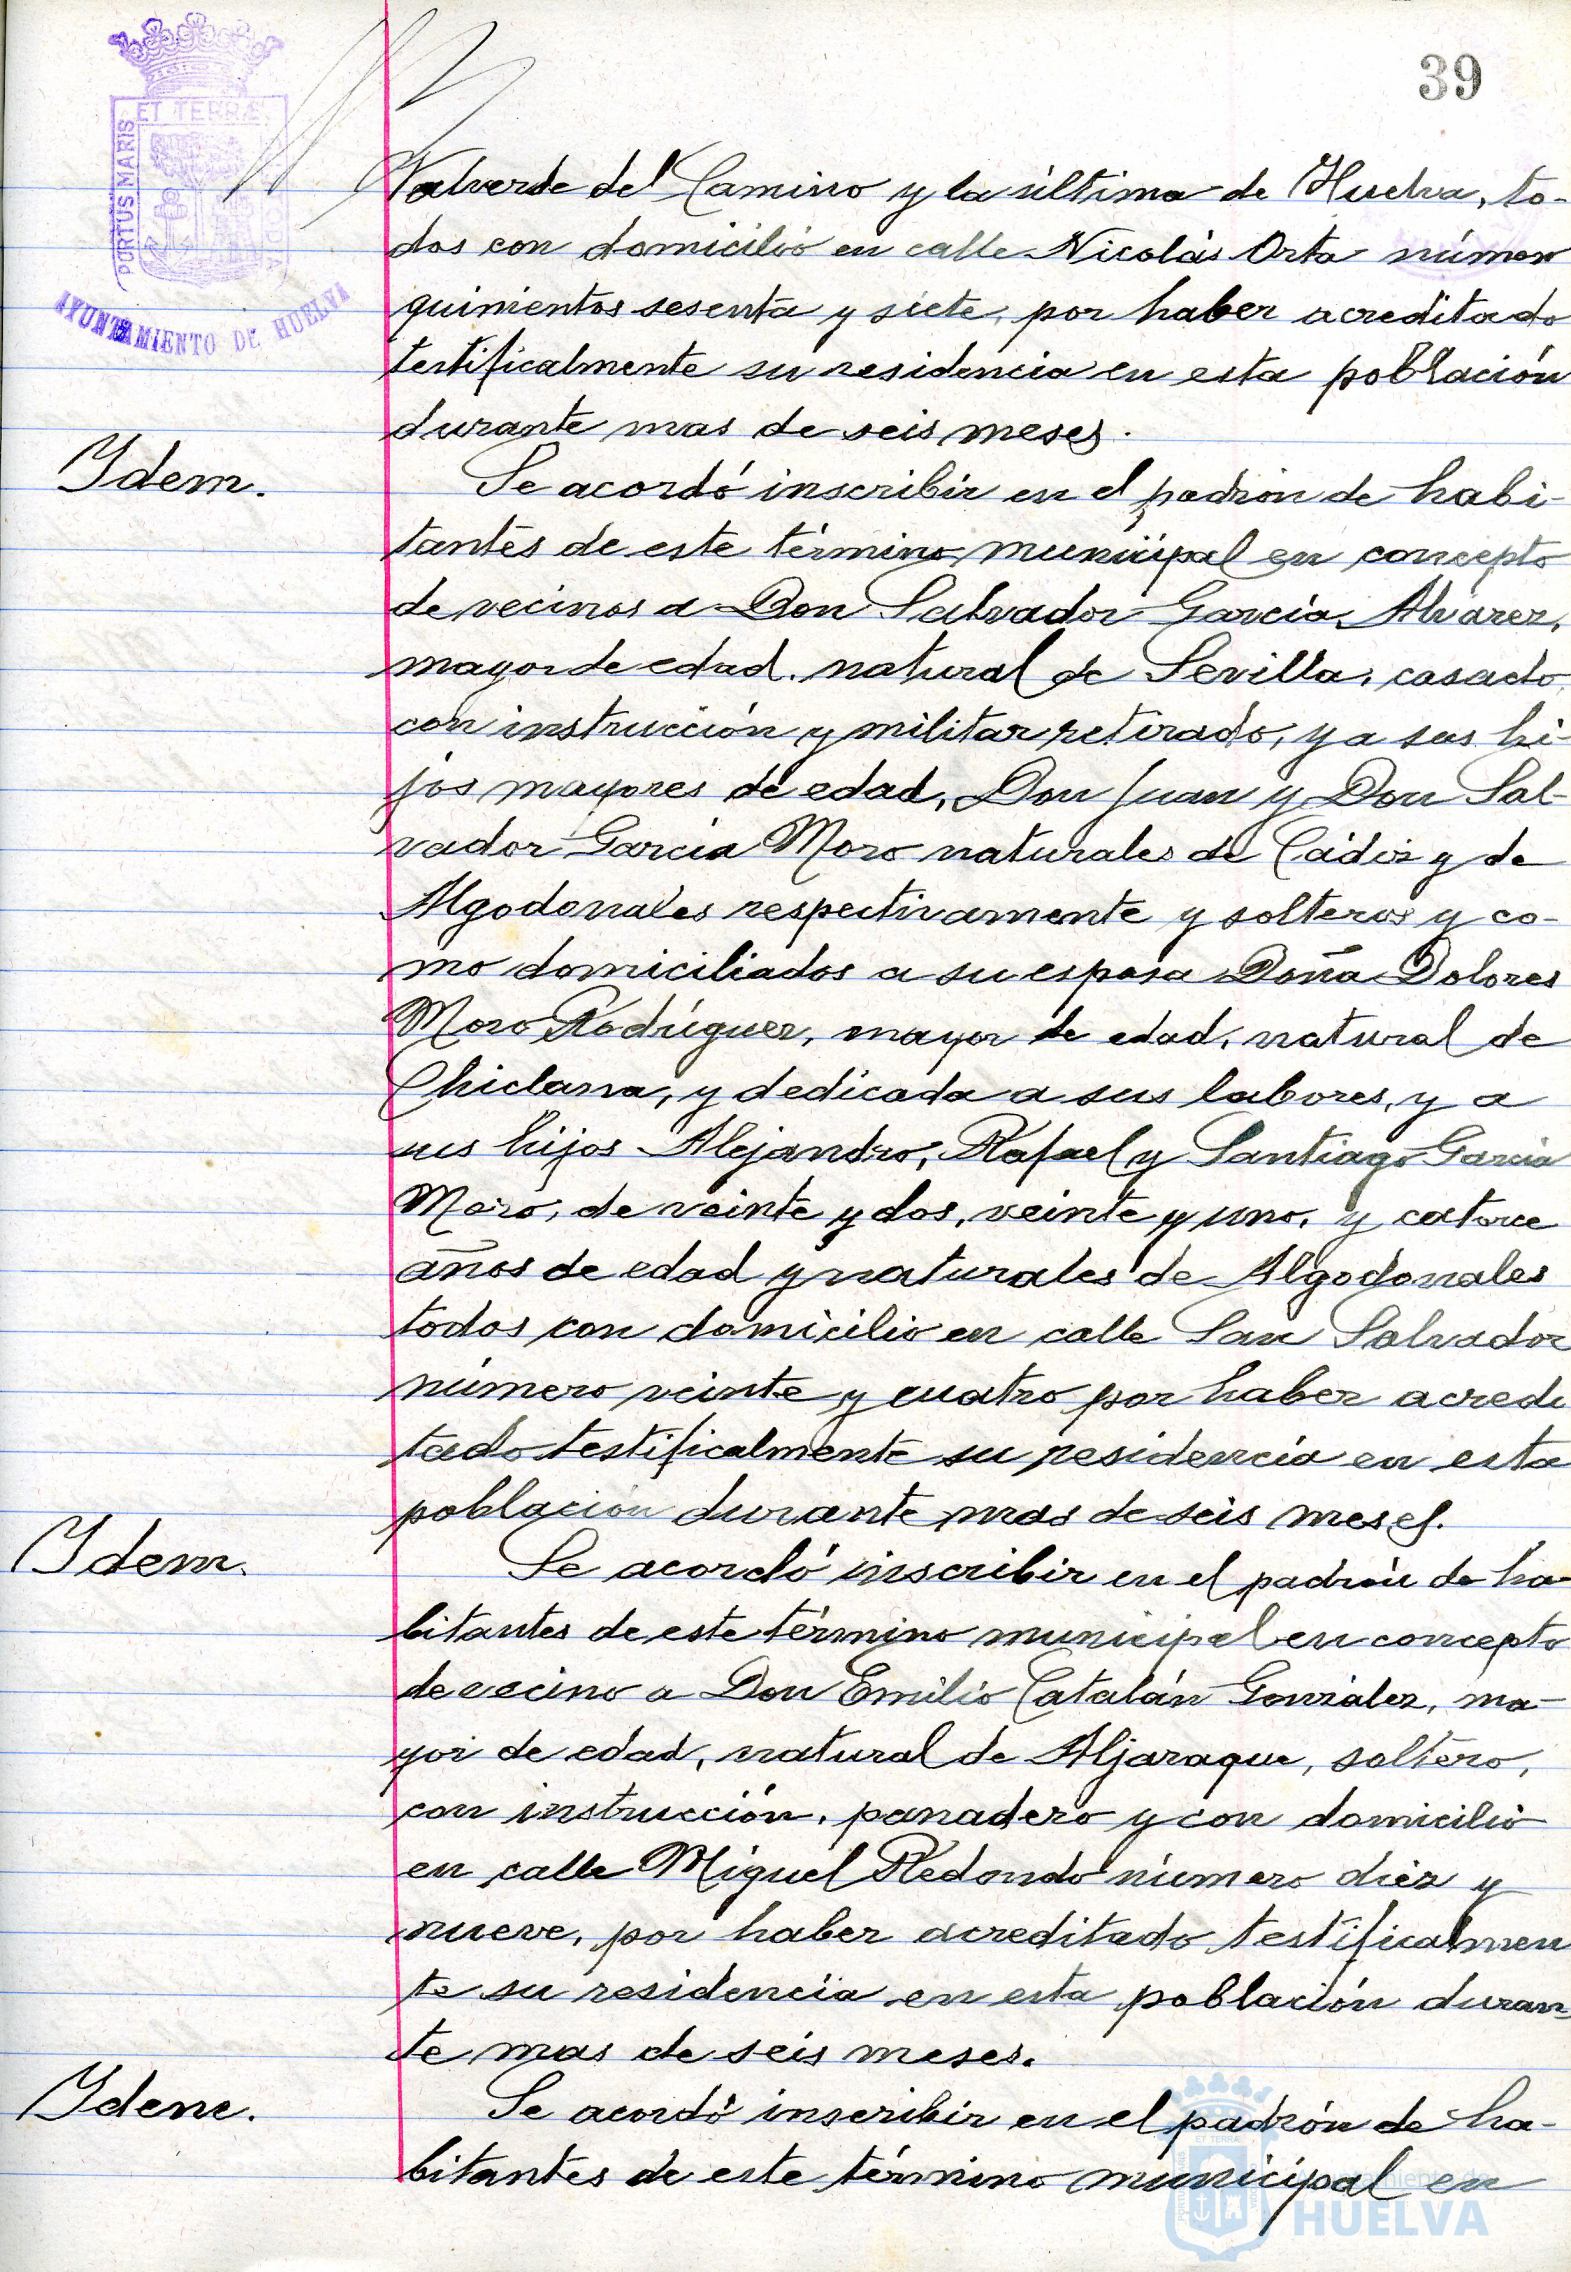 39
ET TERRÆ
PORTUS MARIS
AYUNTAMIENTO DE HUELVA
Valverde del Camino y la última de Huelva, to-
dos con domicilio en calle Nicolás Orta número
quinientos sesenta y siete, por haber acreditado
testificalmente su residencia en esta población
durante mas de seis meses.
Idem.
Se acordó inscribir en el padron de habi-
tantes de este término municipal en concepto
de vecinos a Don Salvador García Alvarez,
mayor de edad, natural de Sevilla, casado,
con instrucción y militar retirado, y a sus hi-
jos mayores de edad, Don Juan y Don Sal-
vador García Moro naturales de Cádiz y de
Algodonales respectivamente y solteros y co-
mo domiciliados a su esposa Doña Dolores
Moro Rodríguez, mayor de edad, natural de
Chiclana, y dedicada a sus labores, y a
sus hijos Alejandro, Rafael y Santiago García
Moro, de veinte y dos, veinte y uno, y catorce
años de edad y naturales de Algodonales
todos con domicilio en calle San Salvador
número veinte y cuatro por haber acredi
tado testificalmente su residencia en esta
población durante mas de seis meses.
Idem.
Se acordó inscribir en el padrón de ha-
bitantes de este término municipal en concepto
de vecino a Don Emilio Catalán González, ma-
yor de edad, natural de Aljaraque, soltero,
con instrucción, panadero y con domicilio
en calle Miguel Redondo número diez y
nueve, por haber acreditado testificalmen
te su residencia en esta población duran-
te mas de seis meses.
Idem.
Se acordó inscribir en el padrón de ha-
bitantes de este término municipal en
Ayuntamiento de
HUELVA